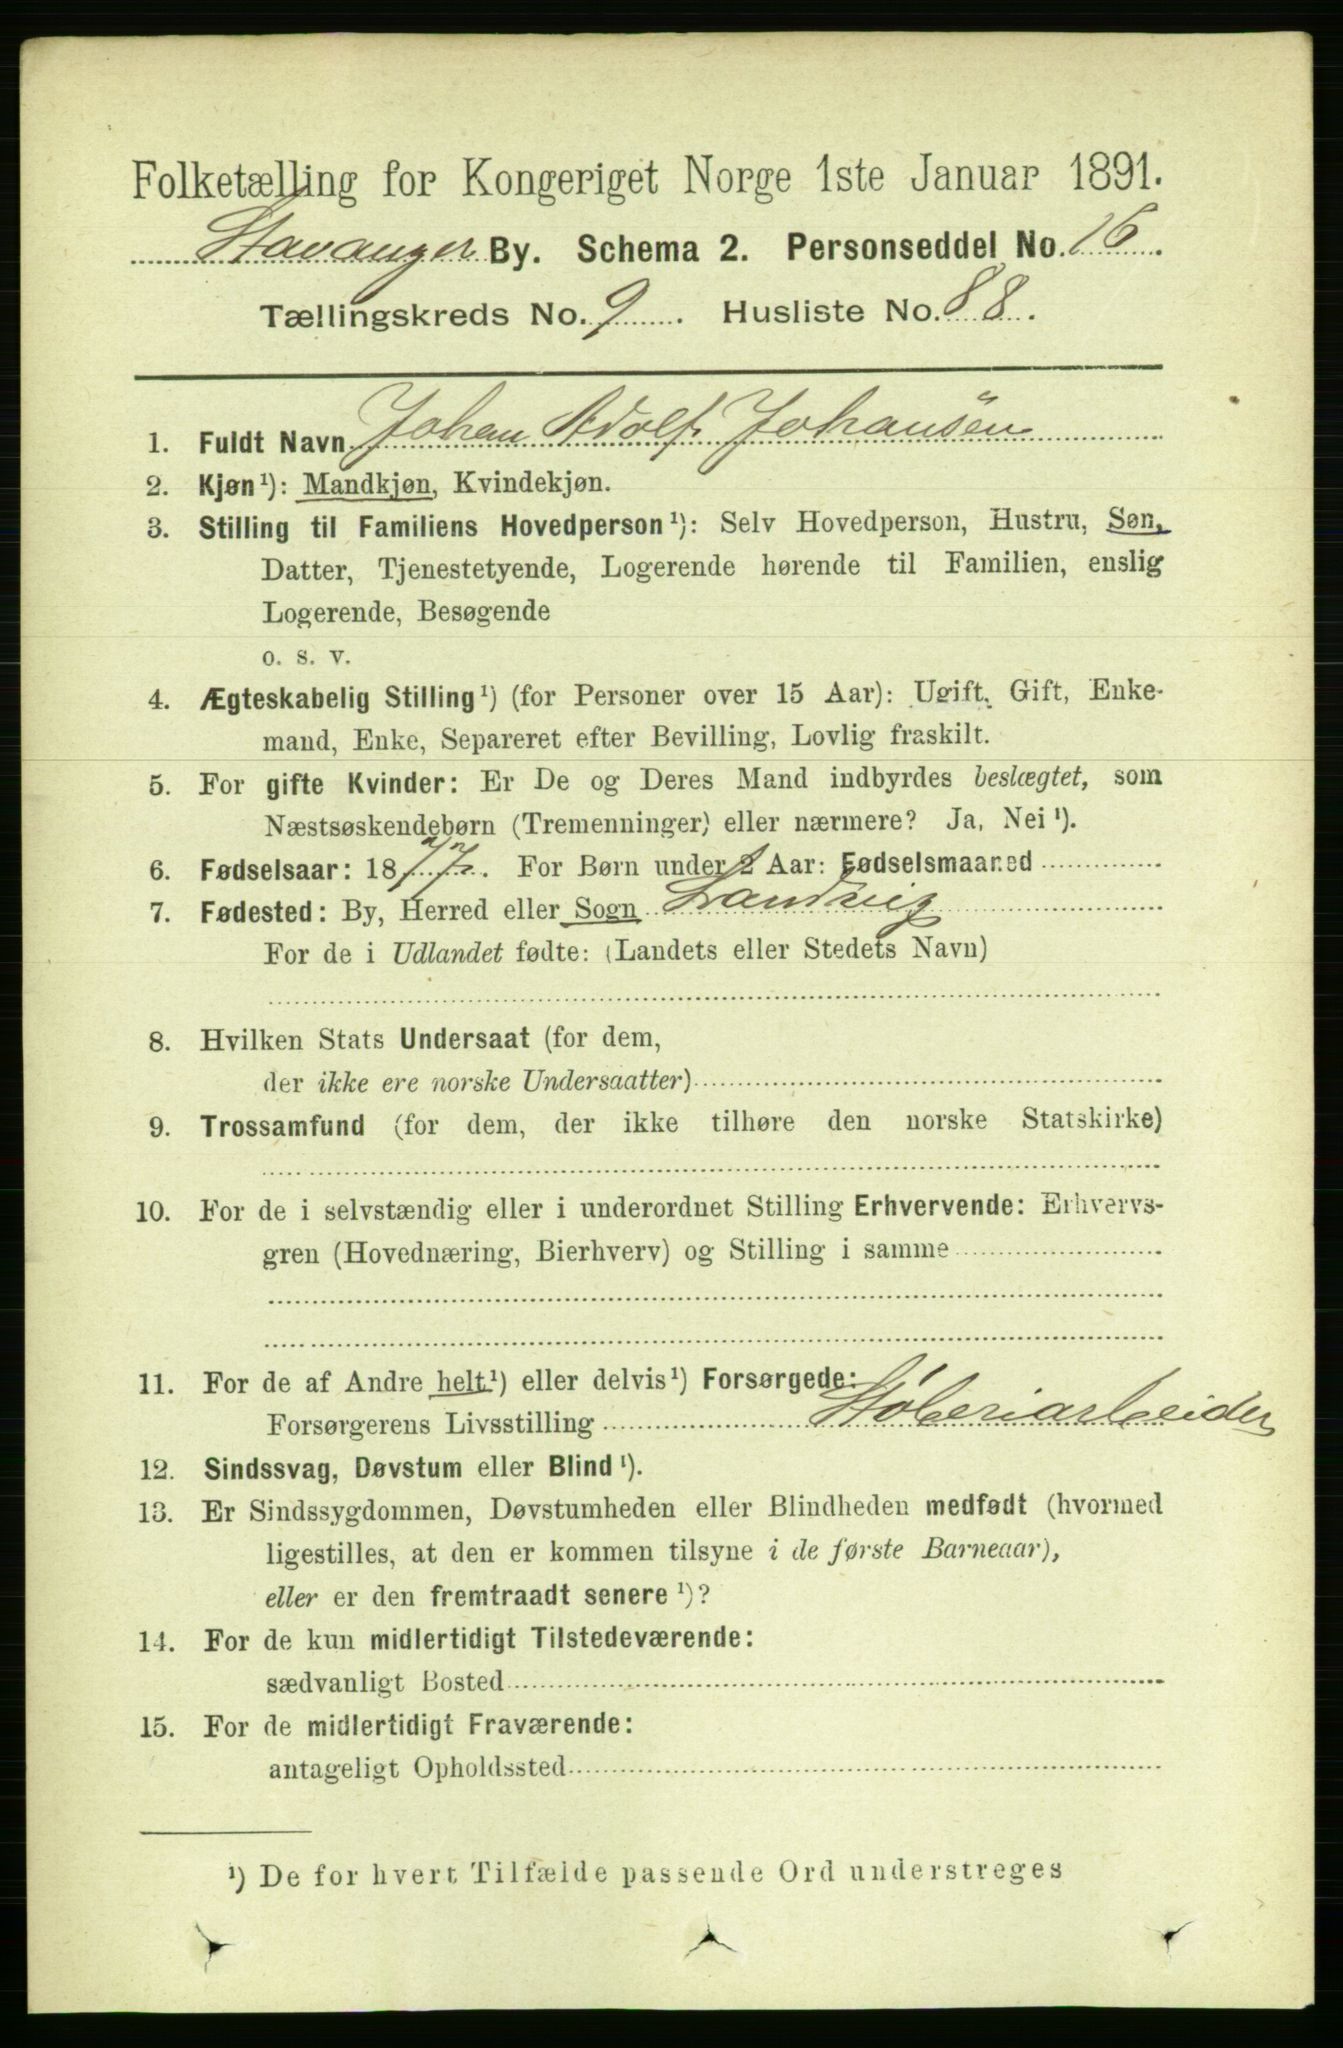 Folketælling for Kongeriget Norge 1ste Januar 1891.
Stavanger By. Schema 2. Personseddel No. 16.
Tællingskreds No. 9. Husliste No. 88.
1. Fuldt Navn Johan Adolf Johansen
2. Kjøn¹): Mandkjøn, Kvindekjøn.
3. Stilling til Familiens Hovedperson¹): Selv Hovedperson, Hustru, Søn,
Datter, Tjenestetyende, Logerende hørende til Familien, enslig
Logerende, Besøgende
o. s. v.
4. Ægteskabelig Stilling¹) (for Personer over 15 Aar): Ugift, Gift, Enke-
mand, Enke, Separeret efter Bevilling, Lovlig fraskilt.
5. For gifte Kvinder: Er De og Deres Mand indbyrdes beslægtet, som
Næstsøskendebørn (Tremenninger) eller nærmere? Ja, Nei¹).
6. Fødselsaar: 1877. For Børn under 2 Aar: Fødselsmaaned
7. Fødested: By, Herred eller Sogn Landvig
For de i Udlandet fødte: (Landets eller Stedets Navn)
8. Hvilken Stats Undersaat (for dem,
der ikke ere norske Undersaatter)
9. Trossamfund (for dem, der ikke tilhøre den norske Statskirke)
10. For de i selvstændig eller i underordnet Stilling Erhvervende: Erhvervs-
gren (Hovednæring, Bierhverv) og Stilling i samme
11. For de af Andre helt¹) eller delvis¹) Forsørgede:
Forsørgerens Livsstilling Støberiarbeider
12. Sindssvag, Døvstum eller Blind¹).
13. Er Sindssygdommen, Døvstumheden eller Blindheden medfødt (hvormed
ligestilles, at den er kommen tilsyne i de første Barneaar),
eller er den fremtraadt senere¹)?
14. For de kun midlertidigt Tilstedeværende:
sædvanligt Bosted
15. For de midlertidigt Fraværende:
antageligt Opholdssted
¹) De for hvert Tilfælde passende Ord understreges